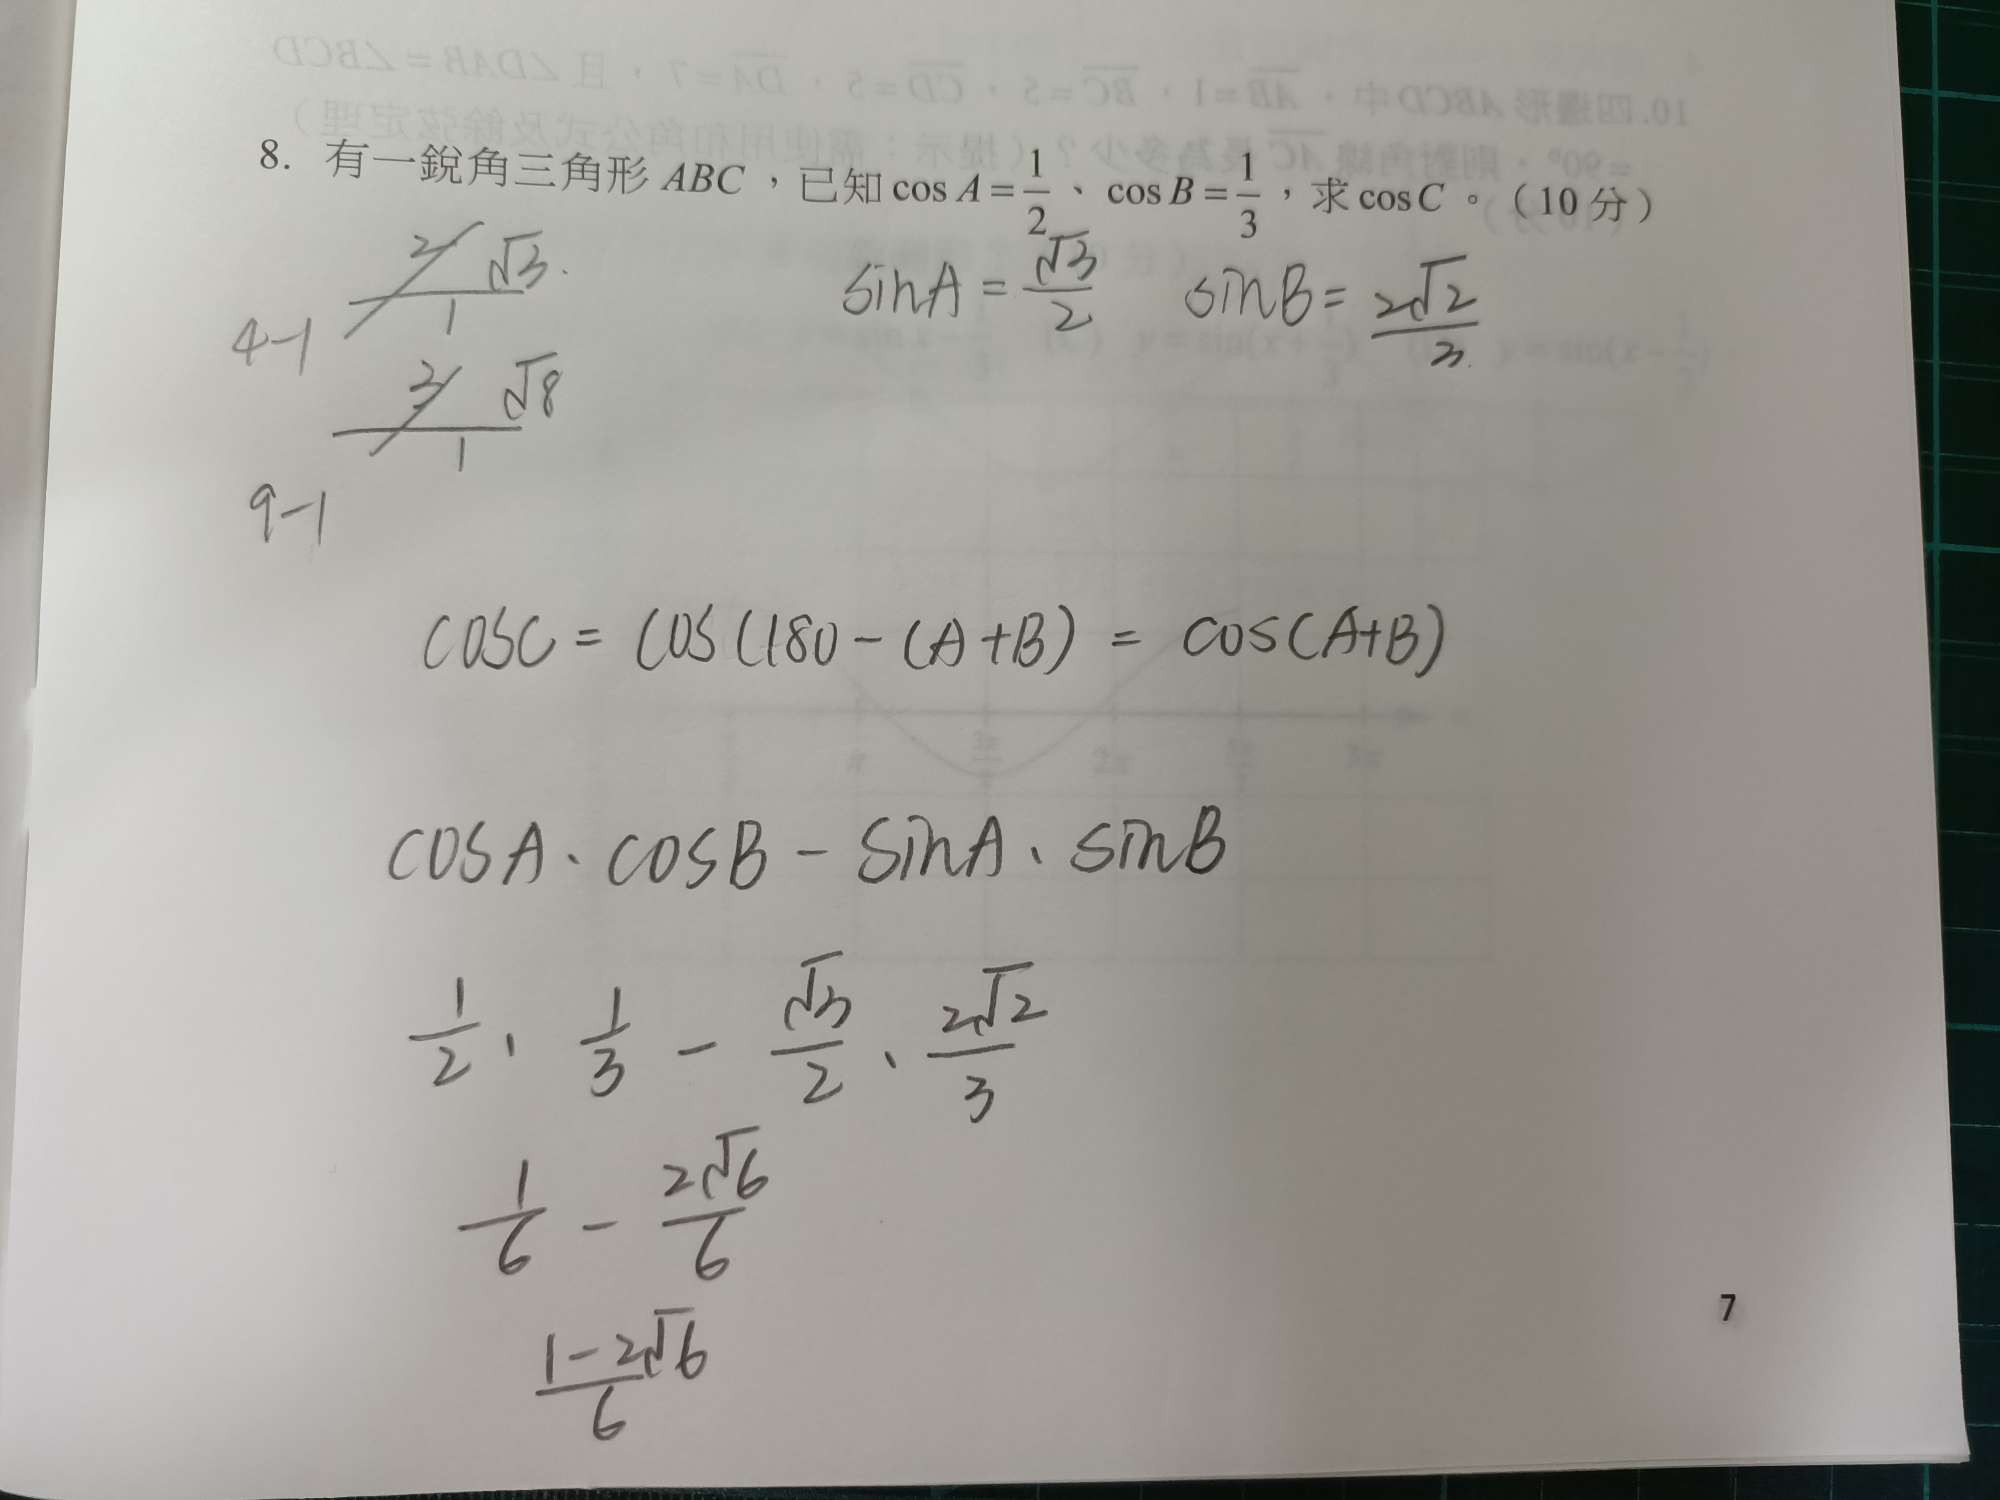 8. 有一銳角三角形 ABC，已知 cos A = 1/2、cos B = 1/3，求 cos C。（10 分）
2 √3
1
4-1
3 √8
1
9-1
sinA = √3/2 sinB = 2√2/3
cosC = cos(180-(A+B) = cos(A+B)
cosA·cosB - sinA·sinB
1/2 · 1/3 - √3/2 · 2√2/3
1/6 - 2√6/6
1-2√6/6
7